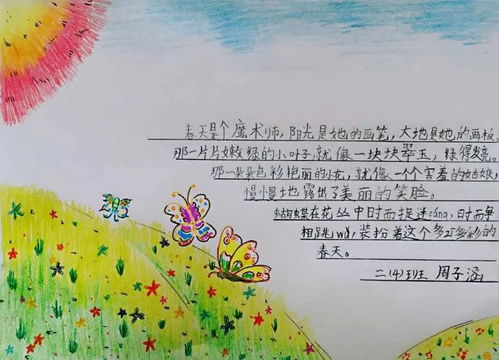 春天是个魔术师,阳光是她的画笔,大地是她的画板。
那一片片嫩绿的小叶子,就像一块块翠玉,绿得发亮。
那一朵朵色彩艳丽的小花,就像一个个害羞的
慢慢地露出了美丽的笑脸。
蝴蝶在花丛中时而捉迷cáng,时而
相跳wǔ,装扮着这个多彩的
春天。
二(4)班 周子涵